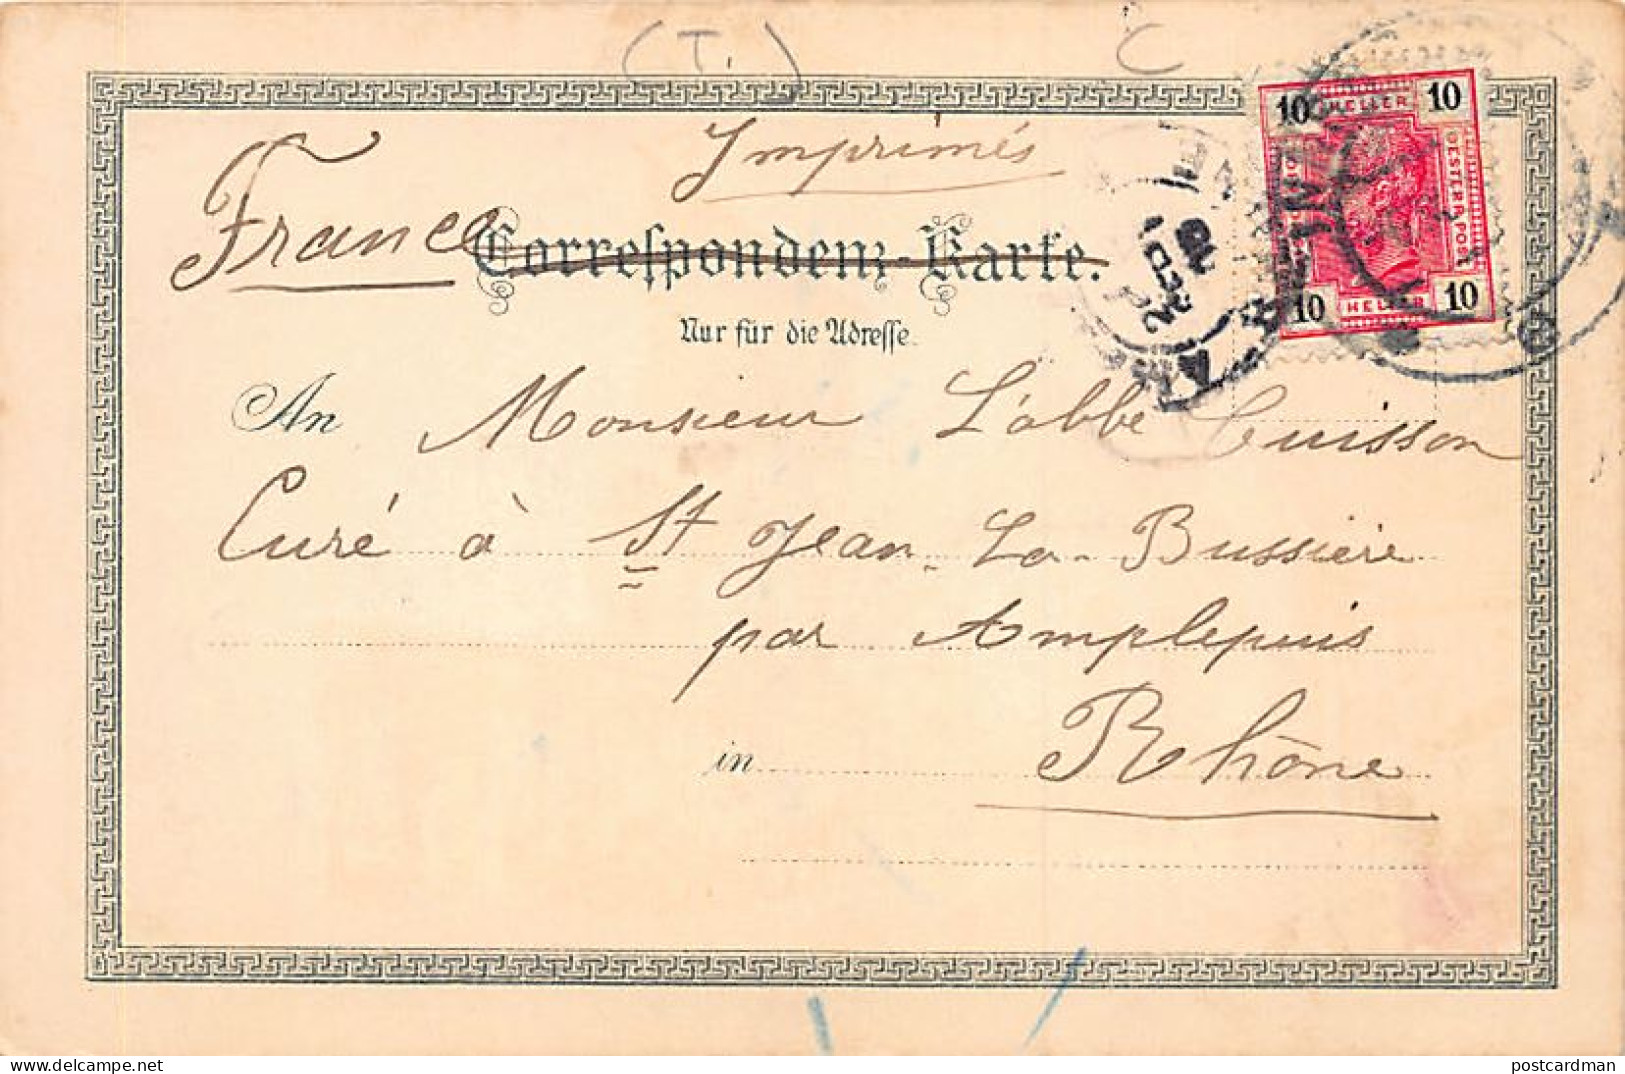 (T.)
C
Imprimés
France
Correspondenz-Karte.
Nur für die Adresse.
10 HELLER 10
OESTERR. POST
10 HELLER 10
An Monsieur L'abbé Cuisson
Curé à St Jean-La-Bussière
par Amplepuis
in Rhône
delcampe.net
postcardman